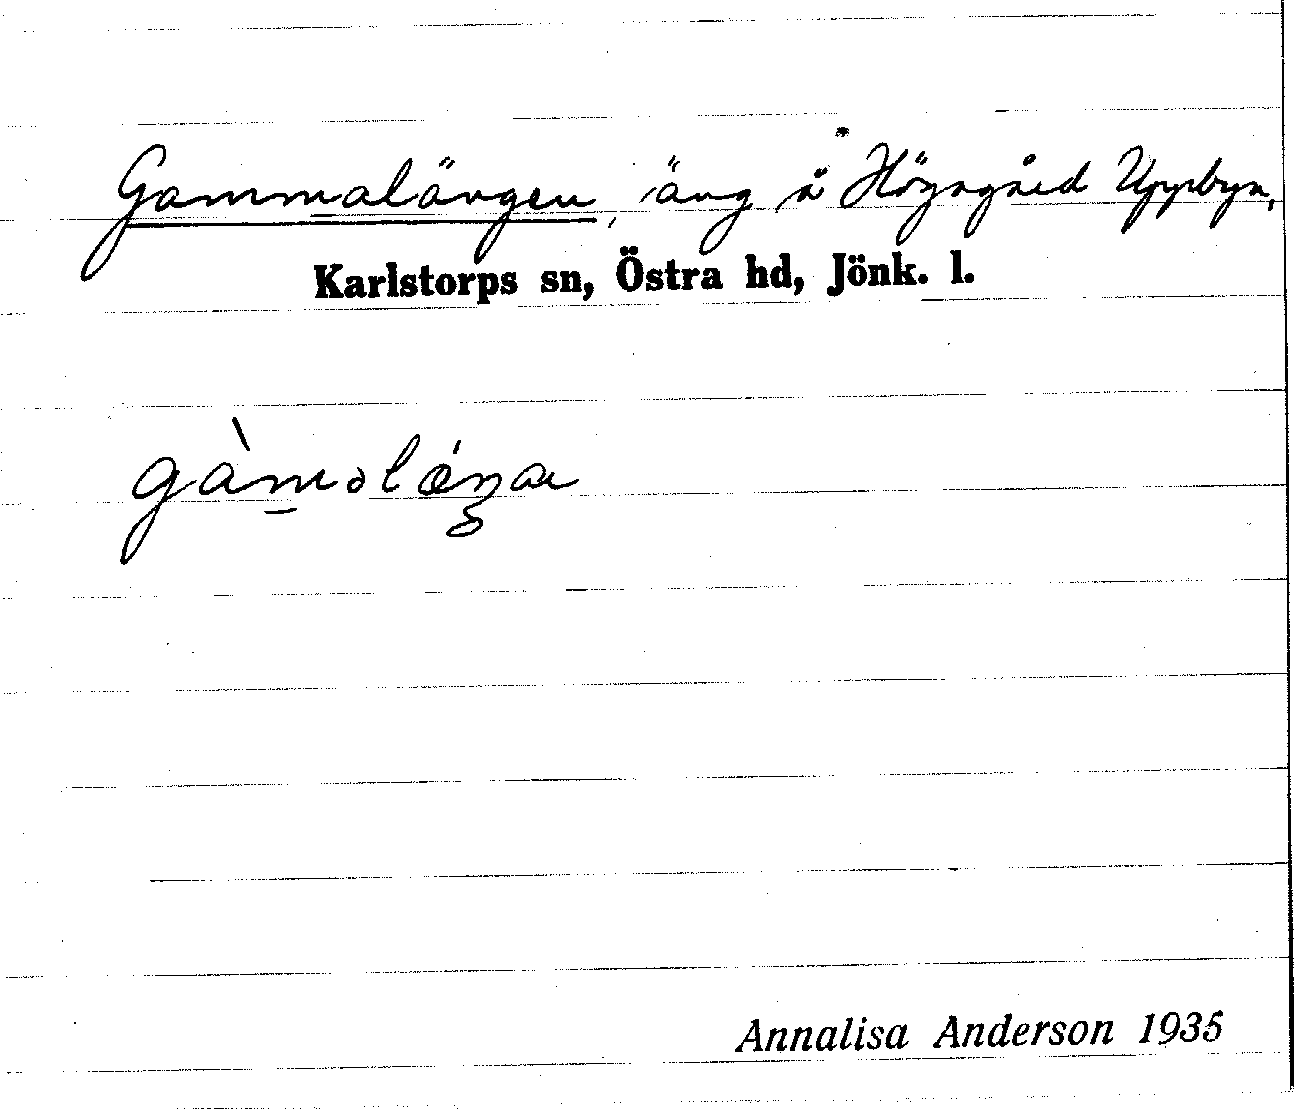 Gammalängen, äng å Högagärd Uppbyn,
Karlstorps sn, Östra hd, Jönk. l.
Annalisa Anderson 1935